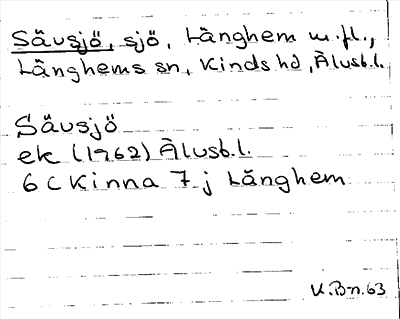 Sävsjö, sjö, Länghem m.fl.,
Länghems sn, Kinds hd, Älvsb.l.
Sävsjö
ek (1962) Älvsb.l.
6 C Kinna 7 j Länghem
V.Bn.63